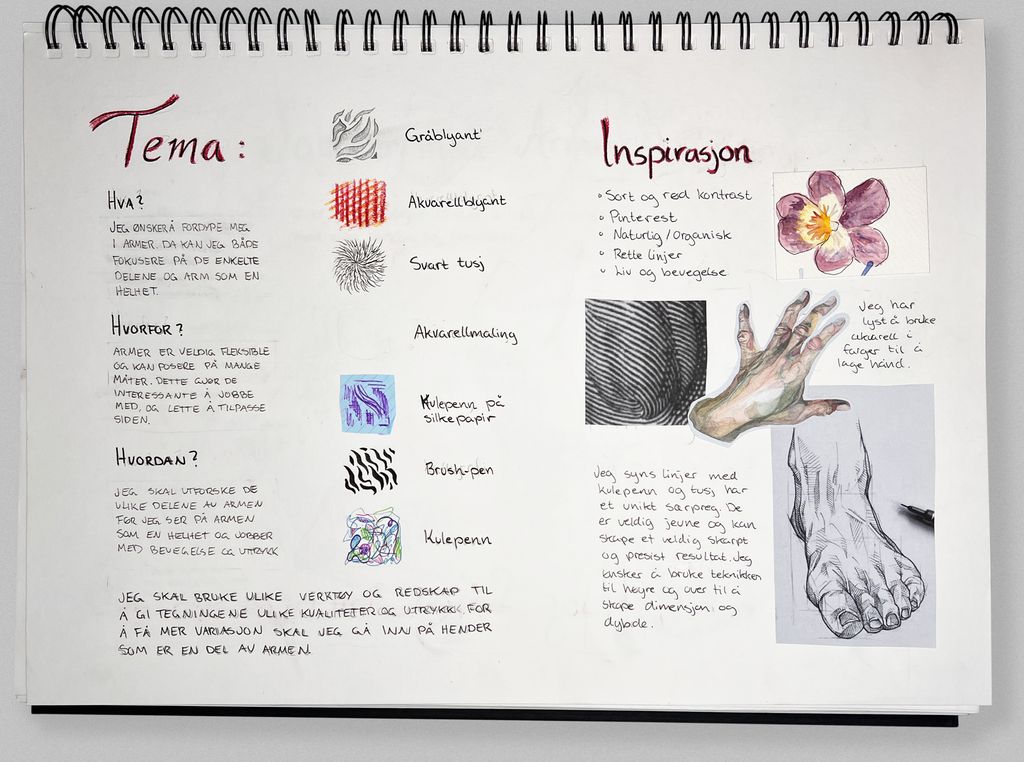 Tema:
HVA?
JEG ØNSKER Å FORDYPE MEG
I ARMER. DA KAN JEG BÅDE
FOKUSERE PÅ DE ENKELTE
DELENE OG ARM SOM EN
HELHET.
HVORFOR?
ARMER ER VELDIG FLEKSIBLE
OG KAN POSERE PÅ MANGE
MÅTER. DETTE GJØR DE
INTERESSANTE Å JOBBE
MED, OG LETTE Å TILPASSE
SIDEN.
HVORDAN?
JEG SKAL UTFORSKE DE
ULIKE DELENE AV ARMEN
FØR JEG SER PÅ ARMEN
SOM EN HELHET OG JOBBER
MED BEVEGELSE OG UTTRYKK
Gråblyant
Akvarellblyant
Svart tusj
Akvarellmaling
Kulepenn på
silkepapir
Brush-pen
Kulepenn
JEG SKAL BRUKE ULIKE VERKTØY OG REDSKAP TIL
Å GI TEGNINGENE ULIKE KVALITETER OG UTTRYKK. FOR
Å FÅ MER VARIASJON SKAL JEG GÅ INN PÅ HENDER
SOM ER EN DEL AV ARMEN.
Inspirasjon
• Sort og rød kontrast
• Pinterest
• Naturlig/Organisk
• Rette linjer
• Liv og bevegelse
Jeg har
lyst å bruke
akvarell i
farger til å
lage hånd.
Jeg syns linjer med
kulepenn og tusj har
et unikt særpreg. De
er veldig jevne og kan
skape et veldig skarpt
og presist resultat. Jeg
ønsker å bruke teknikken
til høyre og over til å
skape dimensjon og
dybde.